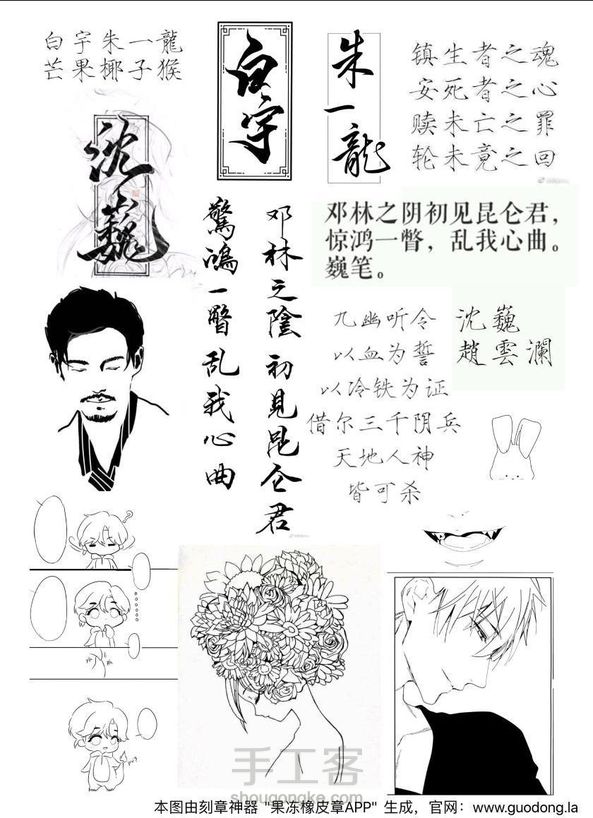 白宇朱一龍
芒果椰子猴
白宇
朱一龍
镇生者之魂
安死者之心
赎未亡之罪
轮未竟之回
沈巍
邓林之阴初见昆仑君，
惊鸿一瞥，乱我心曲。
巍笔。
邓林之陰初見昆仑君
驚鴻一瞥乱我心曲
九幽听令
以血为誓
以冷铁为证
借尔三千阴兵
天地人神
皆可杀
沈巍
趙雲瀾
手工客
本图由刻章神器 "果冻橡皮章APP" 生成，官网：www.guodong.la